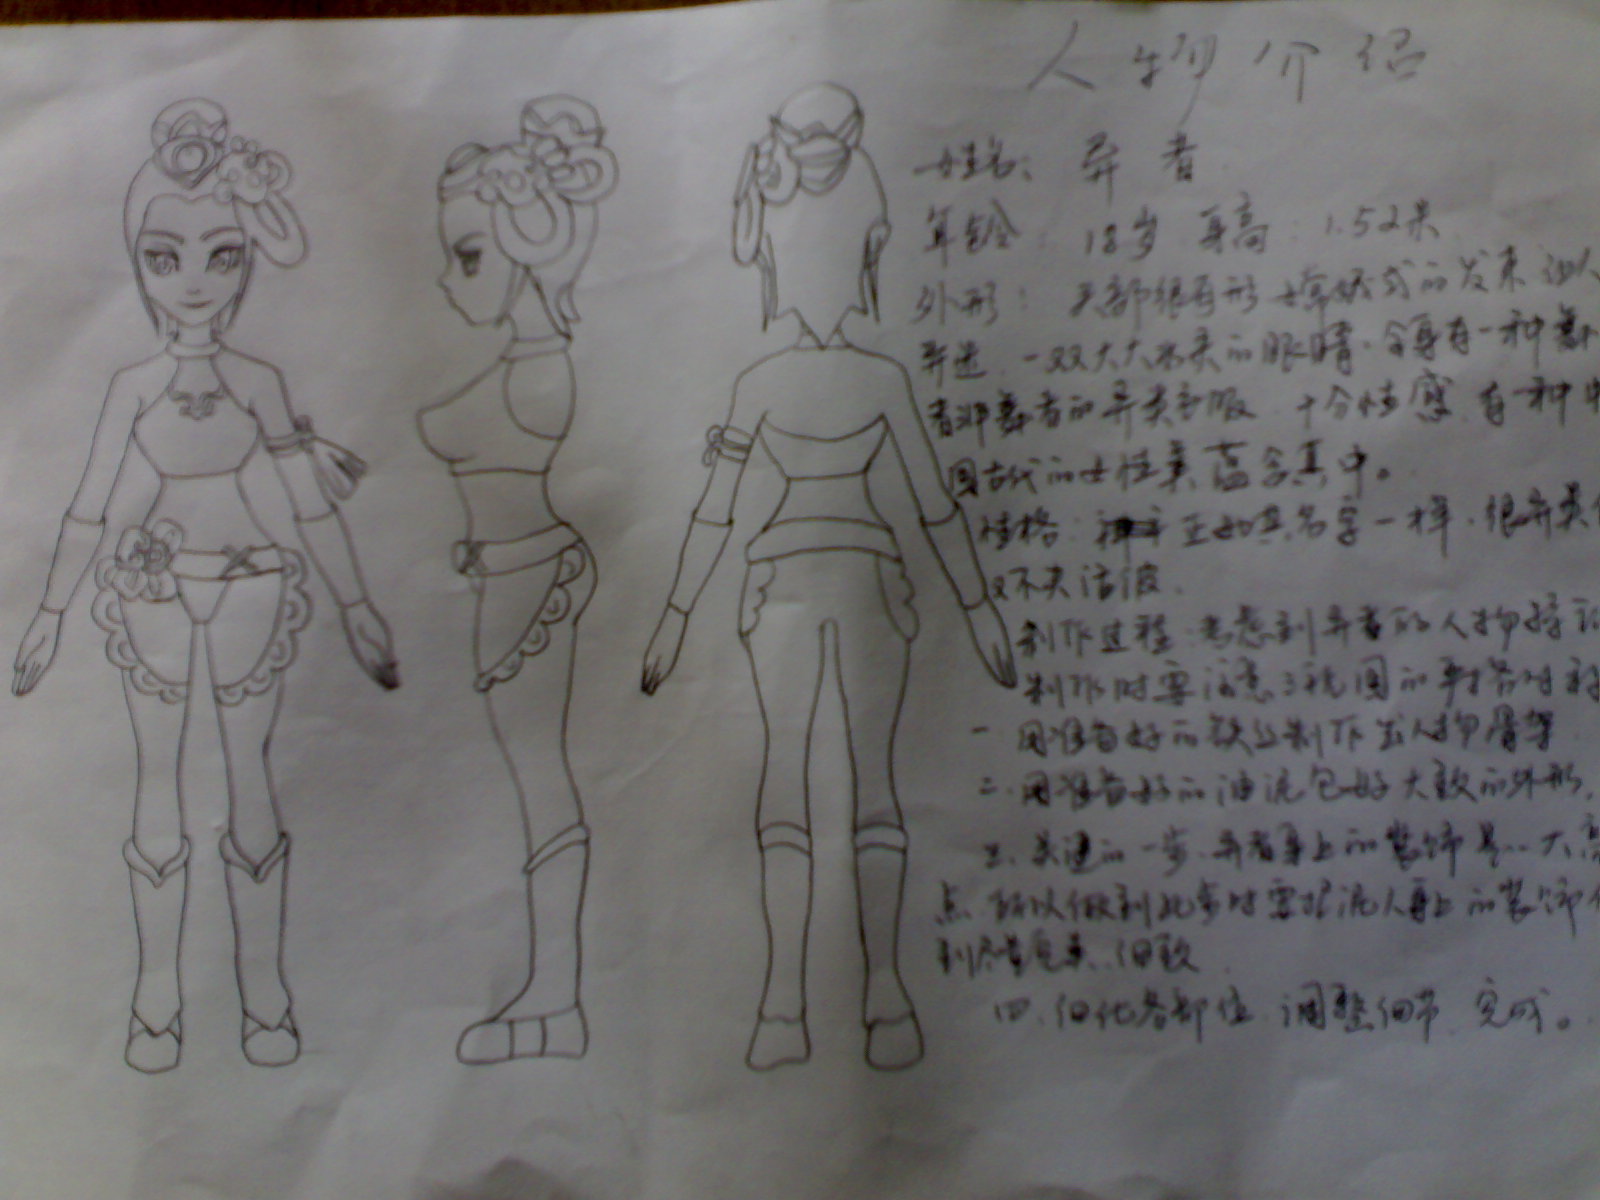 人物介绍
姓名: 异者
年龄: 18岁 身高: 1.52米
外形: 头部很有形 嫦娥式的发束 让人
一双大大水灵的眼睛.全身有一种舞
舞者的异类衣服 十分性感 有一种中
国古代的女性美蕴含其中。
性格: 正如其名字一样.很异类但
又不失活泼.
制作过程:考虑到异者的人物特
制作时要注意三视图的严格对称
一 用准备好的铁丝制作出人物骨架
二.用准备好的油泥包好大致的外形.
三.关键的一步.异者身上的装饰是一大亮
点 所以做到此步时要把泥人身上的装饰做
到尽量完美.细致
四.细化各部位.调整细节 完成。